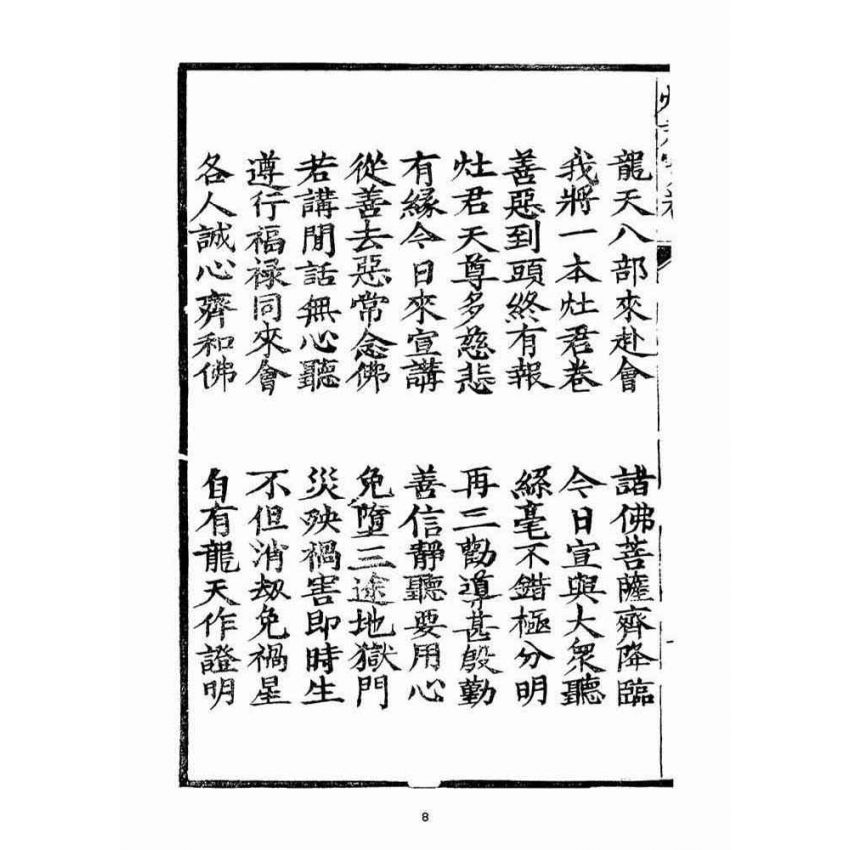 龍天八部來赴會 諸佛菩薩齊降臨
我將一本灶君卷 今日宣與大眾聽
善惡到頭終有報 絲毫不錯極分明
灶君天尊多慈悲 再三勸導甚殷勤
有緣今日來宣講 善信靜聽要用心
從善去惡常念佛 免墮三途地獄門
若講閒話無心聽 災殃禍害即時生
遵行福祿同來會 不但消劫免禍星
各人誠心齊和佛 自有龍天作證明
8